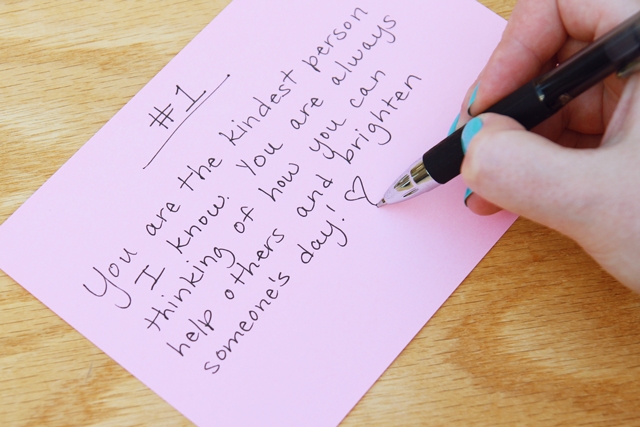 #1
You are the kindest person
I know. You are always
thinking of how you can
help others and brighten
someone's day! ♡